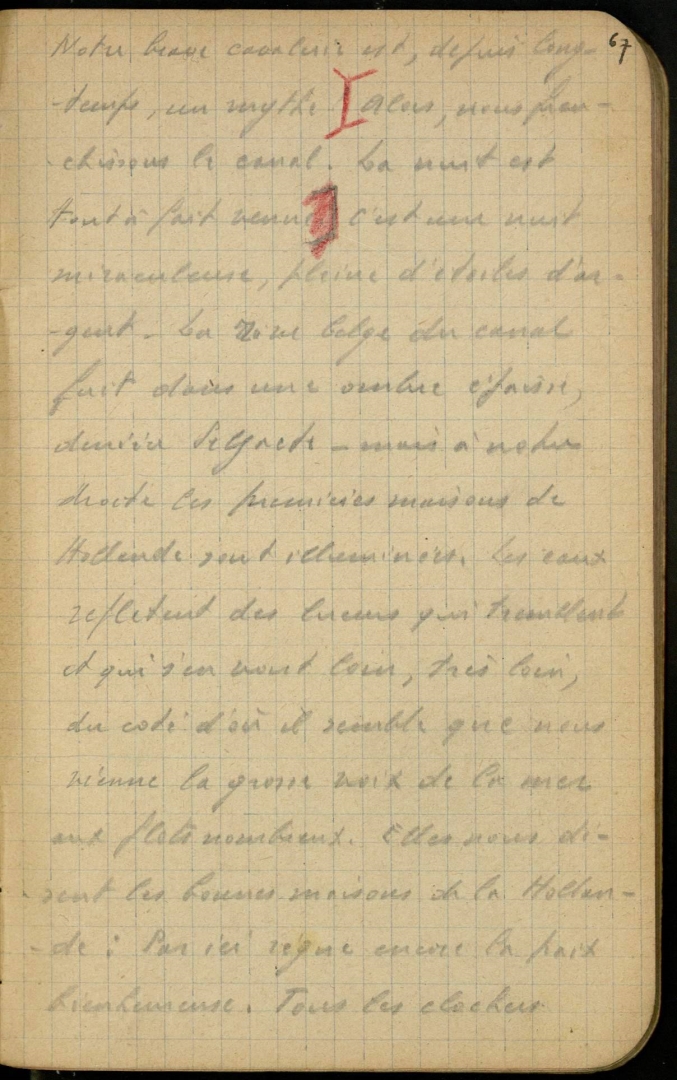 67
Notre brave cavalerie est, depuis long-
-temps, un mythe. Alors, nous fran-
-chissons le canal. La nuit est
tout à fait venue, c'est une nuit
miraculeuse, pleine d'étoiles d'ar-
-gent. La rive belge du canal
fuit dans une ombre épaisse,
derrière Selzaete – mais à notre
droite les premières maisons de
Hollande sont illuminées. Les eaux
reflètent des lueurs qui tremblent
et qui s'en vont loin, très loin,
du coté d'où il semble que nous
vienne la grosse voix de la mer
aux flots nombreux. Elles nous di-
sent les bonnes maisons de la Hollan-
-de : Par ici règne encore la paix
bienheureuse. Tous les clochers